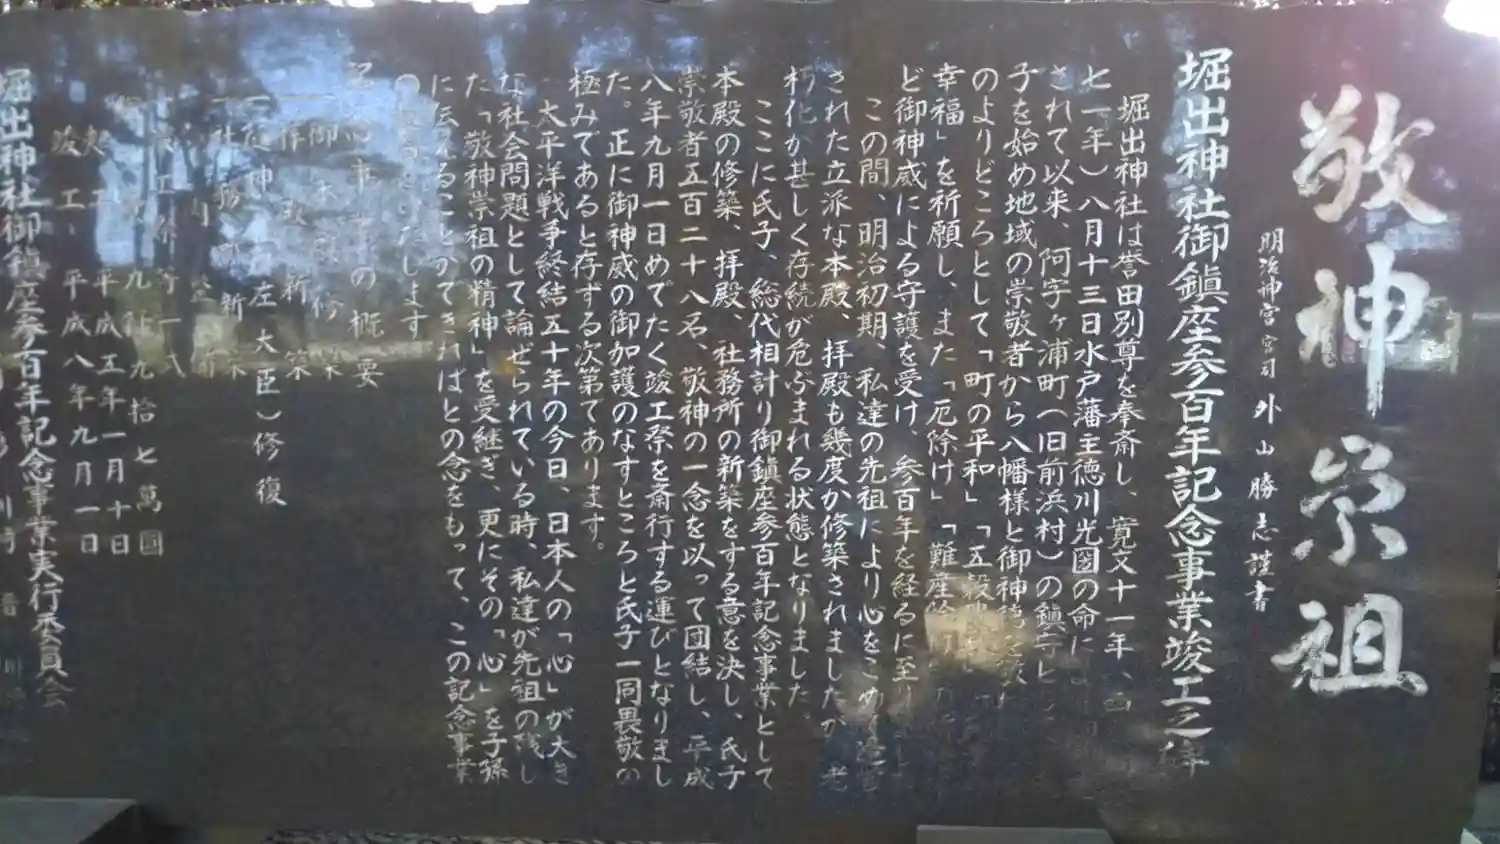 敬神崇祖
明治神宮宮司 外山勝志謹書
堀出神社御鎮座参百年記念事業竣工之碑
堀出神社は誉田別尊を奉斎し、寛文十一年
七一年)八月十三日水戸藩主徳川光圀の命に
されて以来、阿字ヶ浦町(旧前浜村)の鎮守と
子を始め地域の崇敬者から八幡様と御神徳を
のよりどころとして「町の平和」「五穀
幸福」を祈願し、また「厄除け」「難産
ど御神威による守護を受け、参百年を経るに至り
この間、明治初期、私達の先祖により心をこめ
された立派な本殿、拝殿も幾度か修築されましたが、老
朽化が甚しく存続が危ぶまれる状態となりました。
ここに氏子、総代相計り御鎮座参百年記念事業として
本殿の修築、拝殿、社務所の新築をする意を決し、氏子
崇敬者五百二十八名、敬神の一念を以って団結し、平成
八年九月一日めでたく竣工祭を斎行する運びとなりまし
た。正に御神威の御加護のなすところと氏子一同畏敬の
極みであると存ずる次第であります。
太平洋戦争終結五十年の今日、日本人の「心」が大き
な社会問題として論ぜられている時、私達が先祖の残し
た「敬神崇祖の精神」を受継ぎ、更にその「心」を子孫
に伝えることができればとの念をもって、この記念事業
たします
念事業の概要
一御本殿修築
一拝殿新築
一社務所新築
神 左大臣)修復
九仟九拾七萬円
平成五年一月十日
竣工、平成八年九月一日
堀出神社御鎮座参百年記念事業実行委員会